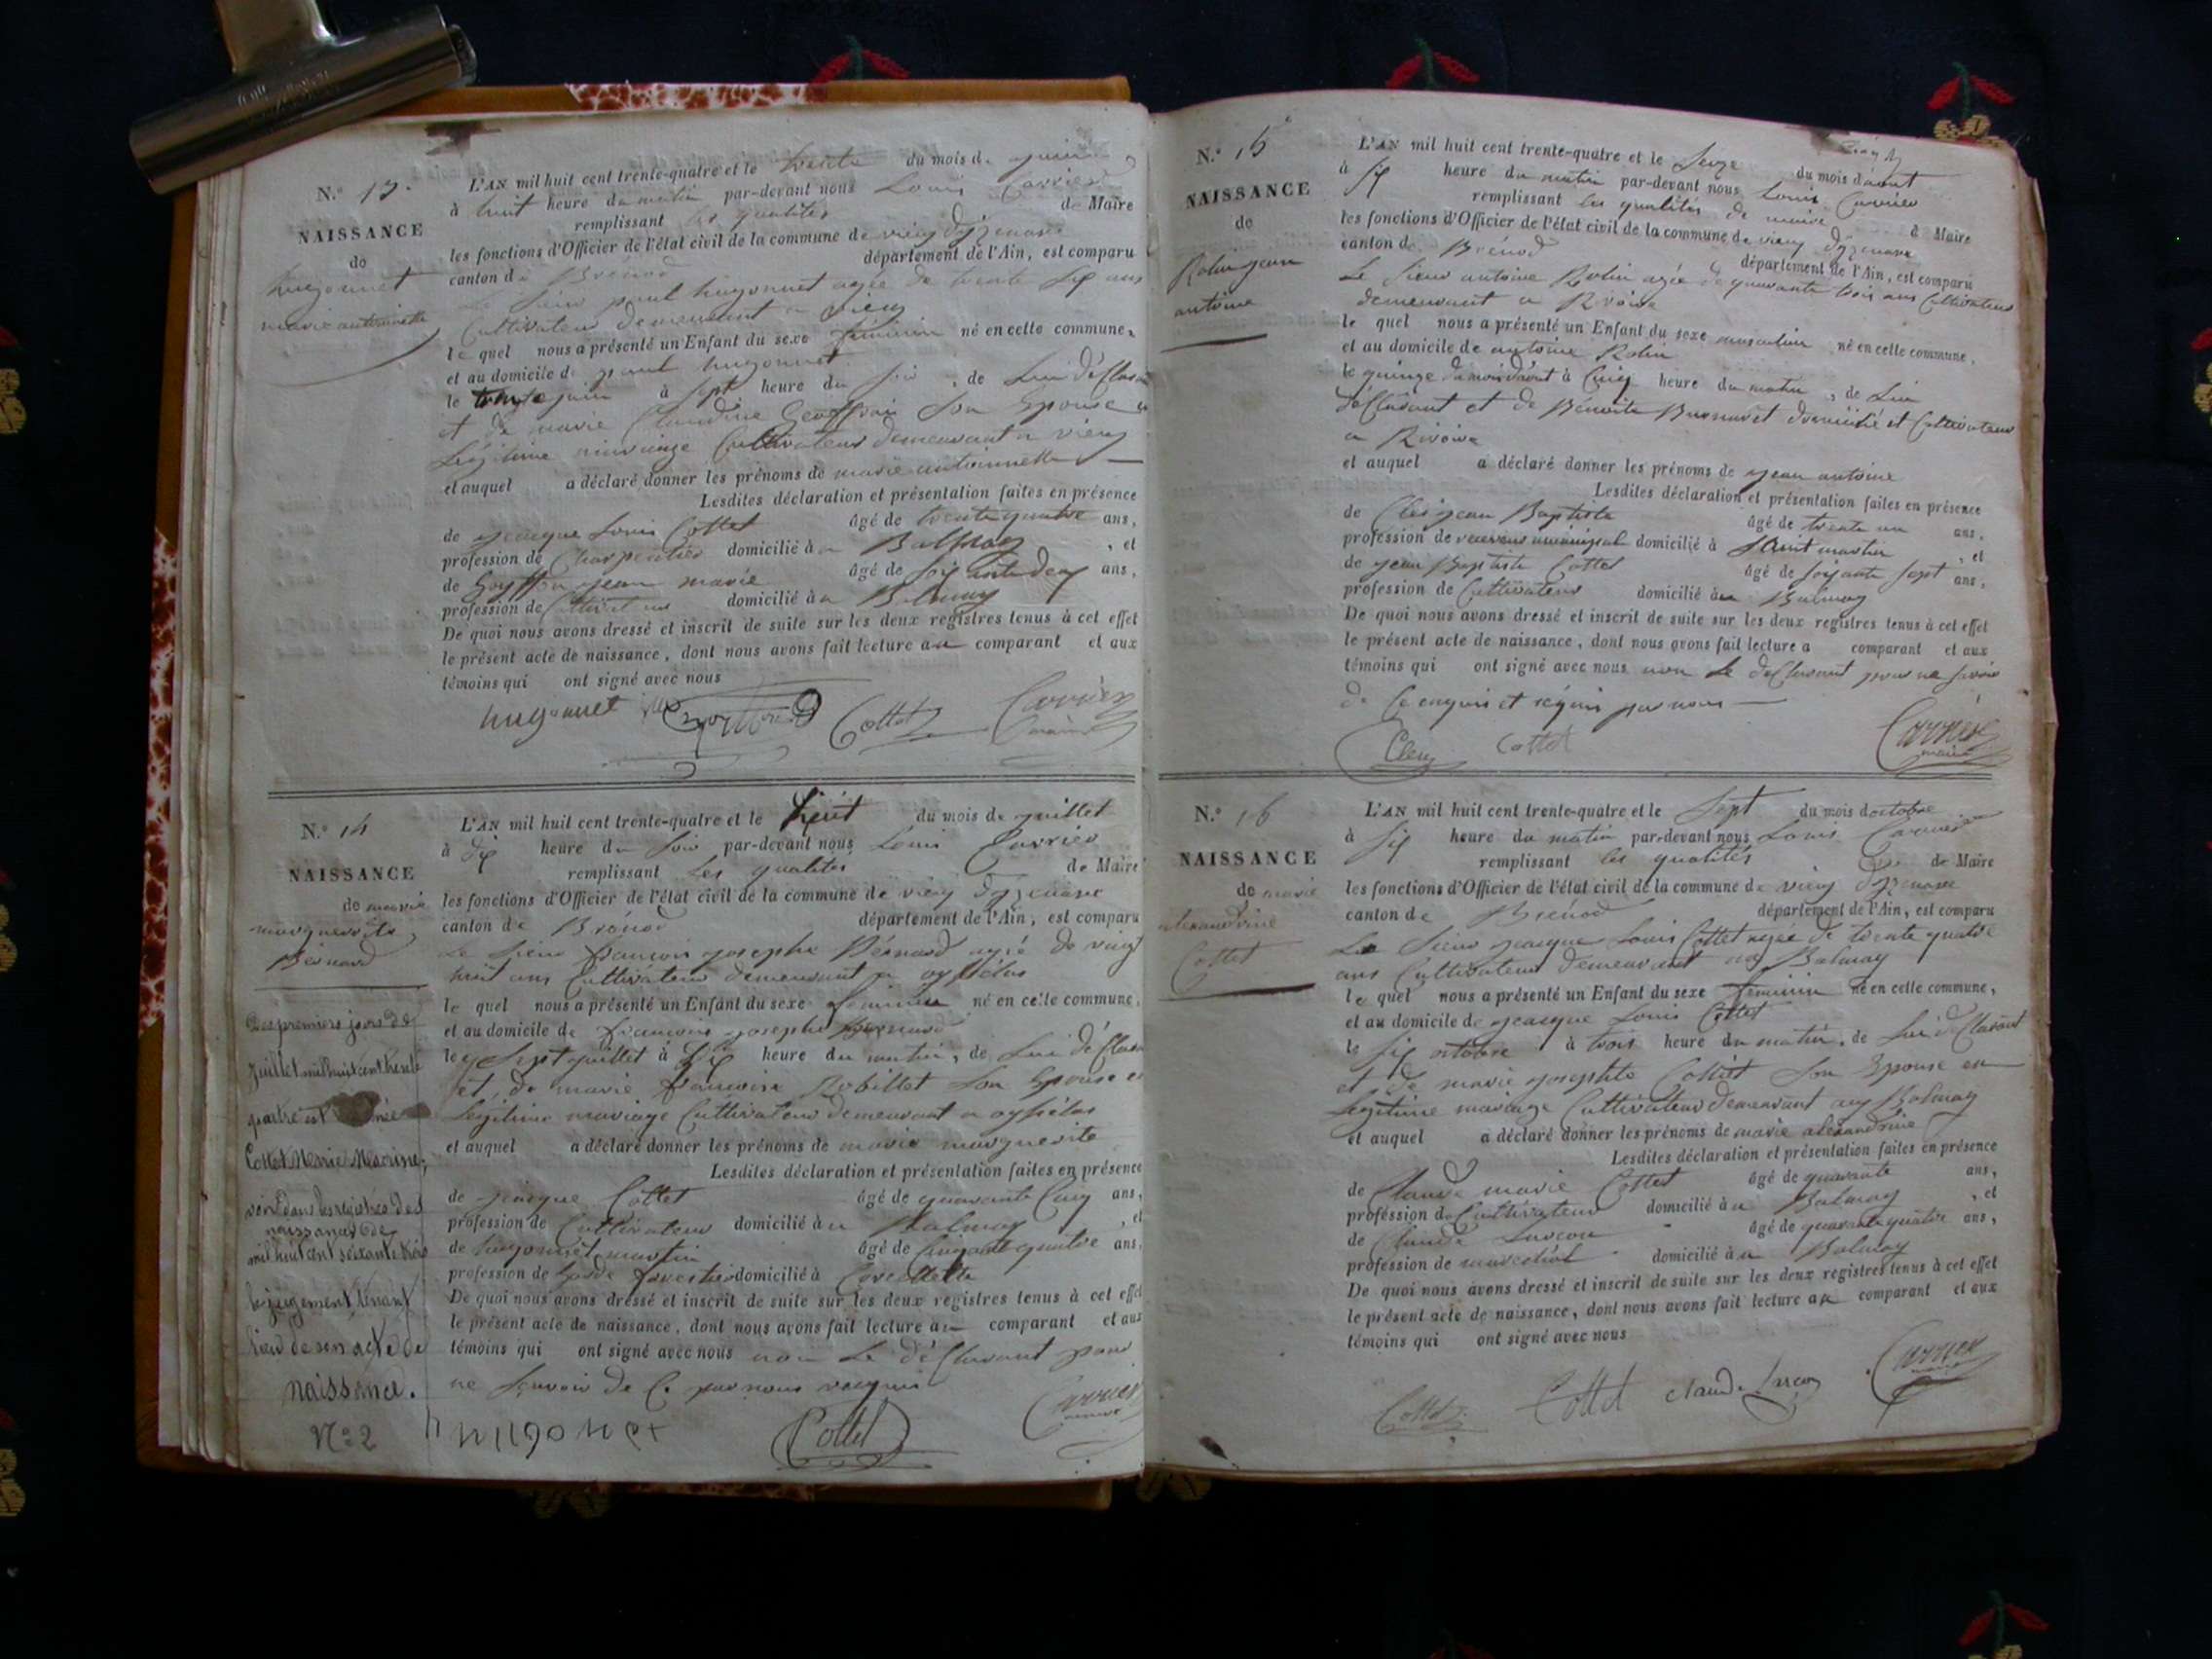 N.° 13.
NAISSANCE
de
hugonnet
marie antoinette
L'AN mil huit cent trente-quatre et le trente du mois de juin
à huit heure du matin par-devant nous Louis Carrier
remplissant les qualités de Maire
les fonctions d'Officier de l'état civil de la commune de vieu d'yzenave
canton de Brénod département de l'Ain, est comparu
Le sieur paul hugonnet agée de trente six ans
Cultivateur demeurant a vieu
le quel nous a présenté un Enfant du sexe féminin né en cette commune,
et au domicile de paul hugonnet
le juin à sept heure du soir, de Lui déClarant
et de marie Claudine Geoffrai son Epouse en
Légitime mariage Cultivateur demeurant a vieu
et auquel a déclaré donner les prénoms de marie antoinnette
Lesdites déclaration et présentation faites en présence
de jacque Louis Cottet âgé de trente quatre ans,
profession de Charpentier domicilié à a Balmay, et
de Goyffon jean marie âgé de soixante deux ans,
profession de Cultivateur domicilié à a Balmay
De quoi nous avons dressé et inscrit de suite sur les deux registres tenus à cet effet
le présent acte de naissance, dont nous avons fait lecture au comparant et aux
témoins qui ont signé avec nous
hugonnet Cottet Carrier
maire
N.° 14
NAISSANCE
de marie
marguerite
Bernard
Des premiers jours de
Juillet mil huit cent trente
quatre est née
Cottet Marie
voir dans les registres des
naissances de
mil huit cent soixante trois
le jugement tenant
lieu de son acte de
naissance.
N° 2
L'AN mil huit cent trente-quatre et le huit du mois de juillet
à dix heure du soir par-devant nous Louis Carrier
remplissant Les qualités de Maire
les fonctions d'Officier de l'état civil de la commune de vieu d'yzenave
canton de Brénod département de l'Ain, est comparu
Le sieur francois josephe Bernard agée de vingt
huit ans Cultivateur demeurant a
le quel nous a présenté un Enfant du sexe feminin né en cette commune,
et au domicile de francois josephe Bernard
le sept juillet à six heure du matin, de Lui déClarant
et de marie francoise Robillet son Epouse en
Legitime mariage Cultivateur demeurant a
et auquel a déclaré donner les prénoms de marie marguerite
Lesdites déclaration et présentation faites en présence
de jacque Cottet âgé de quarante Cinq ans,
profession de Cultivateur domicilié à a Balmay, et
de hugonnet martin âgé de Cinquante quatre ans,
profession de Garde forestier domicilié à Corcellette
De quoi nous avons dressé et inscrit de suite sur les deux registres tenus à cet effet
le présent acte de naissance, dont nous avons fait lecture au comparant et aux
témoins qui ont signé avec nous non Le déClarant pour
ne sçavoir de Ce par nous requis
hugonnet Cottet Carrier
maire
N.° 15
NAISSANCE
de
Robin jean
antoine
L'AN mil huit cent trente-quatre et le seize du mois d'aout
à six heure du matin par-devant nous Louis Carrier
remplissant les qualités de maire de Maire
les fonctions d'Officier de l'état civil de la commune de vieu d'yzenave
canton de Brénod département de l'Ain, est comparu
Le sieur antoine Robin agée de quarante trois ans Cultivateur
demeurant a Rivoire
le quel nous a présenté un Enfant du sexe masculin né en cette commune,
et au domicile de antoine Robin
le quinze du mois d'aout à Cinq heure du matin, de Lui
déClarant et de Benoite domicilié et Cultivateur
a Rivoire
et auquel a déclaré donner les prénoms de jean antoine
Lesdites déclaration et présentation faites en présence
de jean Baptiste âgé de trente un ans,
profession de receveur municipal domicilié à saint martin, et
de jean Baptiste Cottet âgé de soixante sept ans,
profession de Cultivateur domicilié à au Balmay
De quoi nous avons dressé et inscrit de suite sur les deux registres tenus à cet effet
le présent acte de naissance, dont nous avons fait lecture a comparant et aux
témoins qui ont signé avec nous non Le déClarant pour ne savoir
de Ce enquis et réquis par nous
Cottet Carrier
maire
N.° 16
NAISSANCE
de marie
alexandrine
Cottet
L'AN mil huit cent trente-quatre et le sept du mois d'octobre
à six heure du matin par-devant nous Louis Carrier
remplissant les qualités de Maire
les fonctions d'Officier de l'état civil de la commune de vieu d'yzenave
canton de Brénod département de l'Ain, est comparu
Le sieur jacque Louis Cottet agée de trente quatre
ans Cultivateur demeurant au Balmay
le quel nous a présenté un Enfant du sexe feminin né en cette commune,
et au domicile de jacque Louis Cottet
le six octobre à trois heure du matin, de Lui déClarant
et de marie josephte Cottet son Epouse en
Legitime mariage Cultivateur demeurant au Balmay
et auquel a déclaré donner les prénoms de marie alexandrine
Lesdites déclaration et présentation faites en présence
de Claude marie Cottet âgé de quarante ans,
profession de Cultivateur domicilié à a Balmay, et
de Claude Luscon âgé de quarante quatre ans,
profession de marechal domicilié à a Balmay
De quoi nous avons dressé et inscrit de suite sur les deux registres tenus à cet effet
le présent acte de naissance, dont nous avons fait lecture au comparant et aux
témoins qui ont signé avec nous
Cottet Cottet claude Carrier